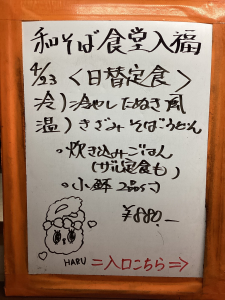 和そば食堂入福
4/23 〈日替定食〉
冷)冷やしたぬき風
温)きざみそばうどん
・炊き込みごはん
(ザル定食も)
・小鉢 2品付
¥880.-
HARU
=入口こちら⇒